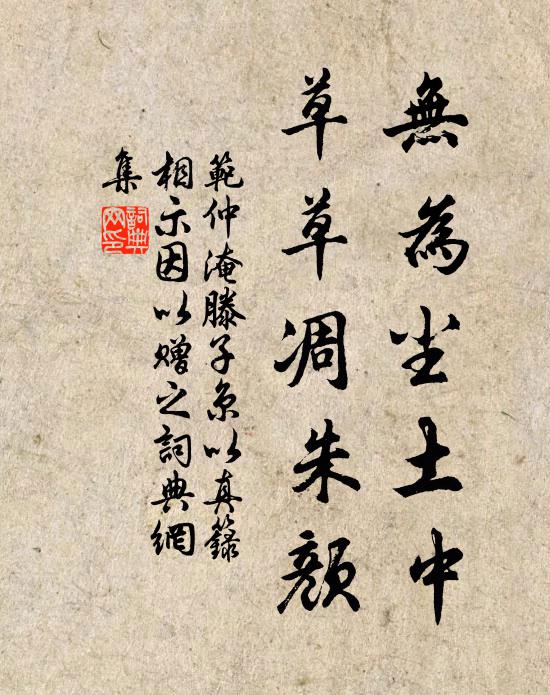 無為尘土中
草草凋朱顏
範仲淹滕子京以真籙
相示因以赠之詞典網
集
詞典网印